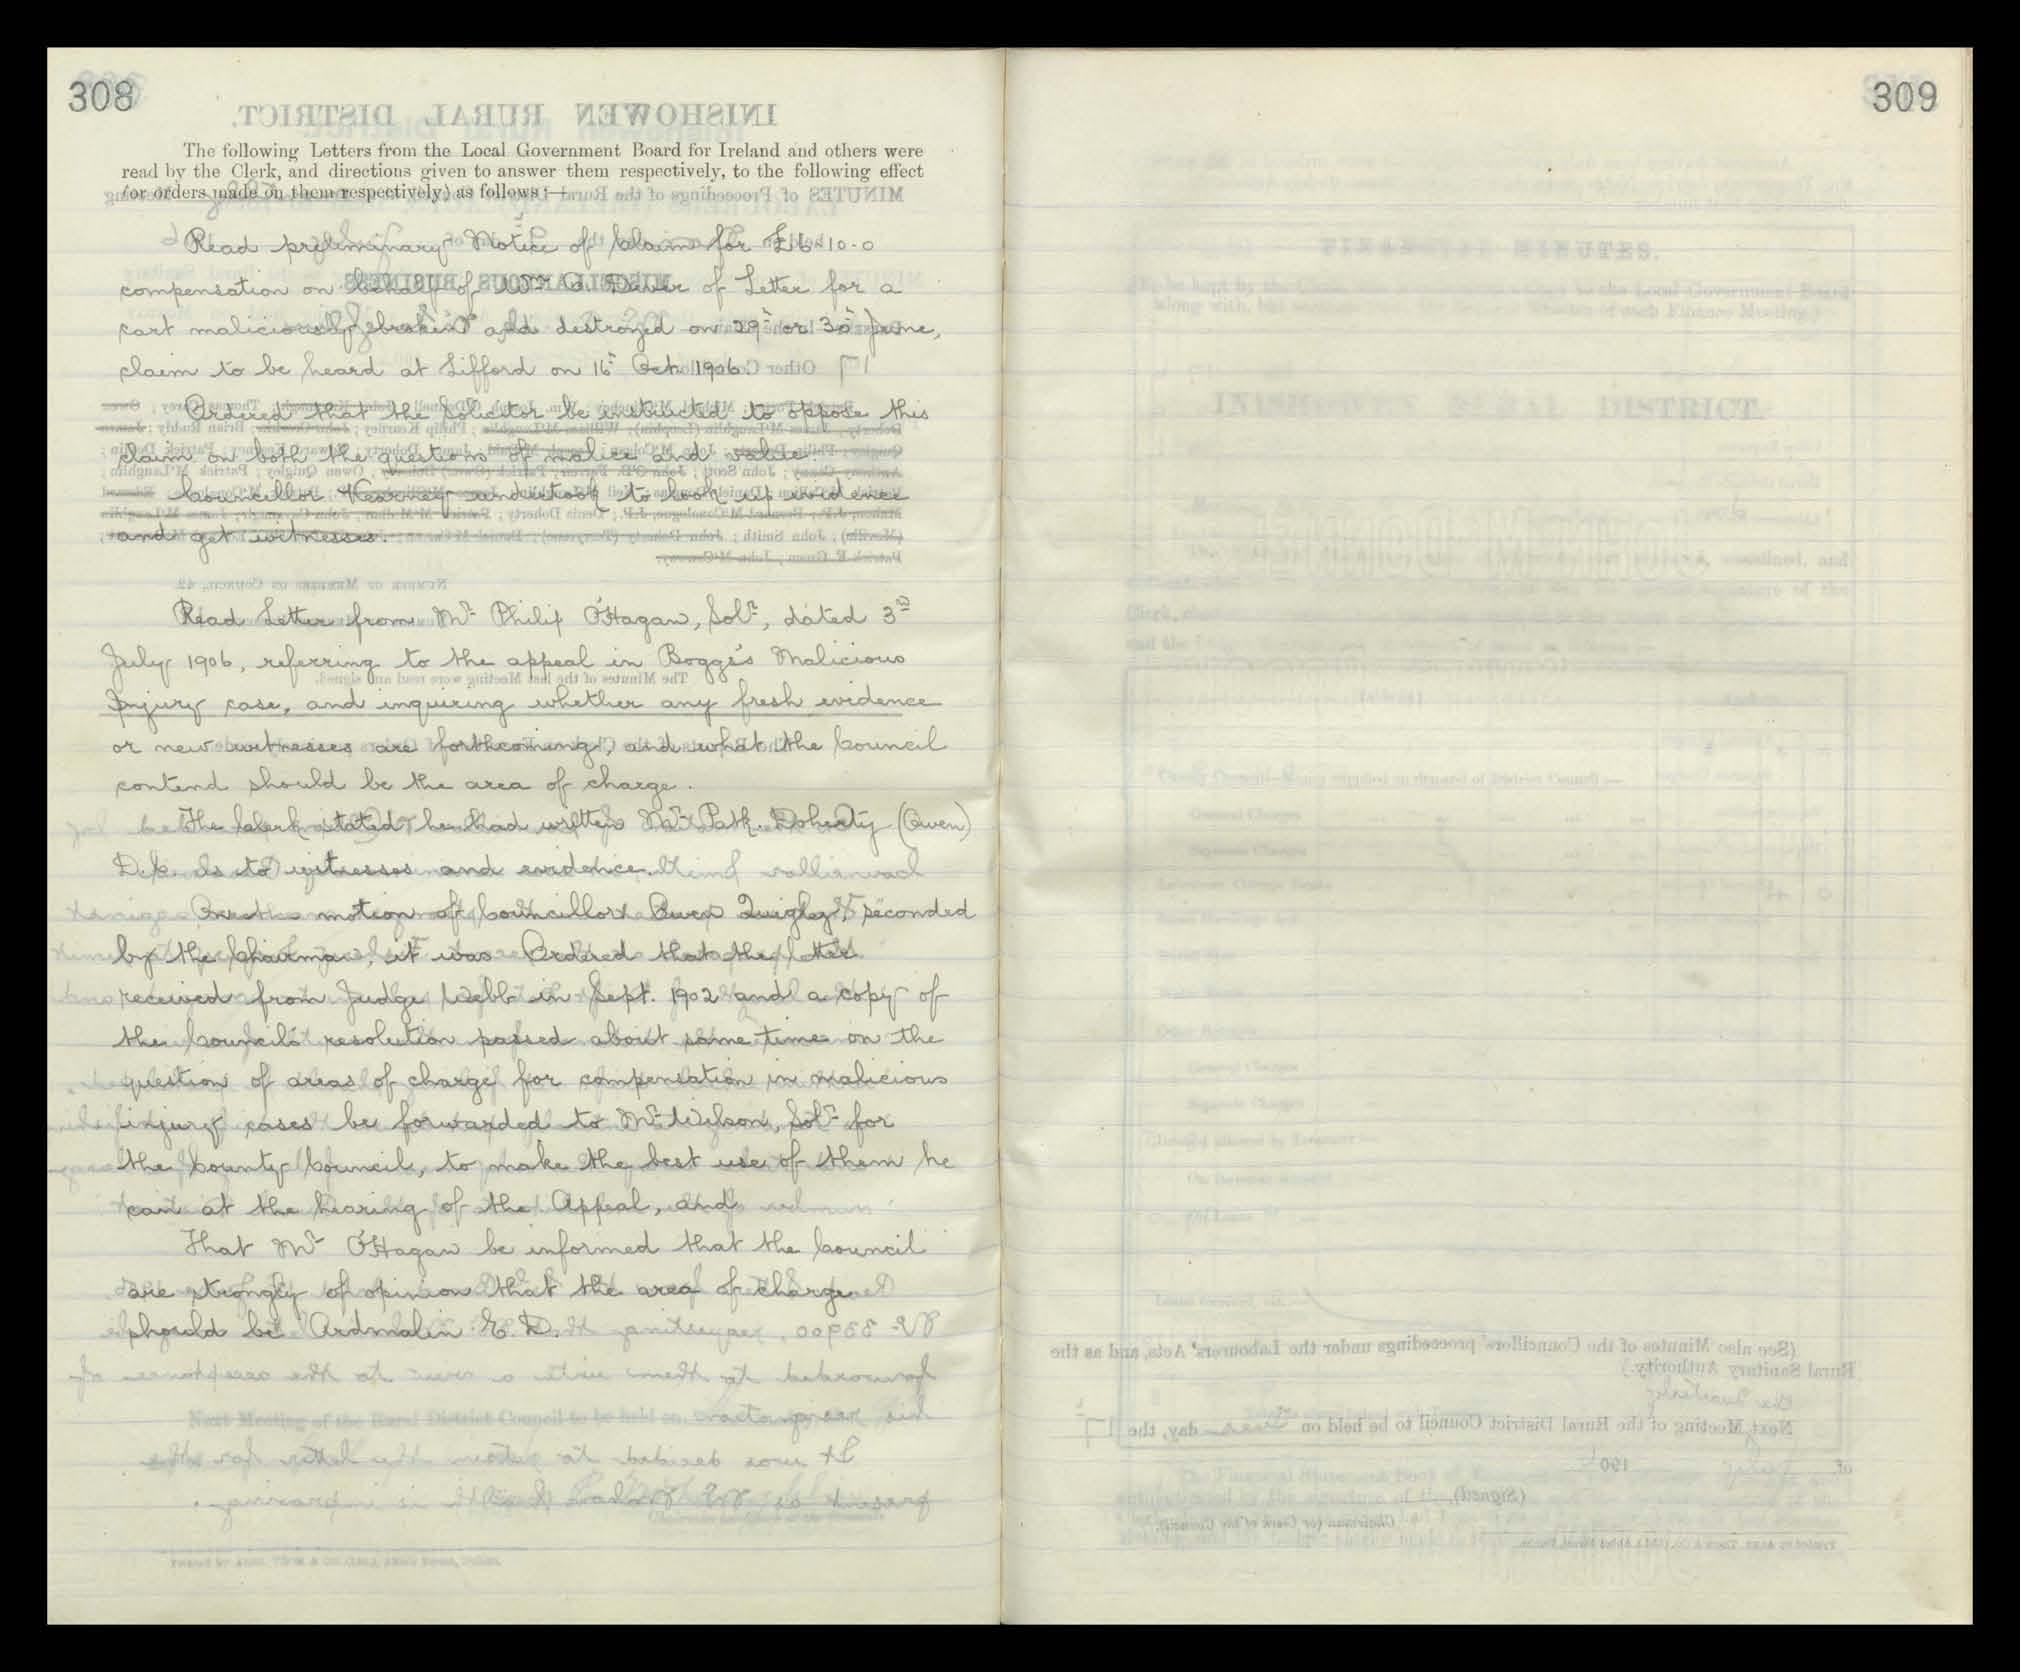 308
The following Letters from the Local Government Board for Ireland and others were
read by the Clerk, and directions given to answer them respectively, to the following effect
(or orders made on them respectively) as follows :—
Read preliminary Notice of Claim for £6-10-0
compensation on behalf of Wm. O. Diver of Letter for a
cart maliciously broken and destroyed on 29th or 30th June,
claim to be heard at Lifford on 16th Oct. 1906.
Ordered that the Solicitor be instructed to oppose this
claim on both the questions of malice and value.
Councillor Kearney undertook to look up evidence
and get witnesses.
Read Letter from Mr Philip O'Hagan, Solr, dated 3rd
July 1906, referring to the appeal in Boggs's Malicious
Injury case, and inquiring whether any fresh evidence
or new witnesses are forthcoming, and what the Council
contend should be the area of charge.
The Clerk stated he had written Mr Patk. Doherty (Owen)
D.C. as to witnesses and evidence.
On the motion of Councillor Owen Quigley, seconded
by the Chairman, it was Ordered that the letter
received from Judge Webb in Sept. 1902 and a copy of
the Council's resolution passed about same time on the
question of areas of charge for compensation in malicious
injury cases be forwarded to Mr Wilson, Solr for
the County Council, to make the best use of them he
can at the hearing of the Appeal, and
That Mr O'Hagan be informed that the Council
are strongly of opinion that the area of charge
should be Ardmalin E. D.
309